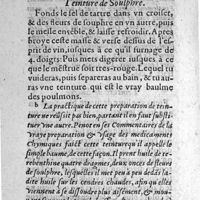 Teinture de Soulphre.
Fonds le sel de tartre dans vn croiset,
& des fleurs de souphre en vn autre, puis
le mesle ensẽble, & laisse refroidir. Apres
broye ceste masse & verse dessus de l'es-
prit de vin, iusques à ce qu'il surnage de
4. doigts: Puis mets digerer iusques à ce
que le mẽstruë soit tres-rouge. Lequel tu
vuideras, puis separeras au bain, & tu au-
ras vne teinture qui est le vray baulme
des poulmons.
b La practique de cette preparation de tein-
ture ne reüssit pas bien, partant il en faut substi-
tuer vne autre. Penot en ses Commentaires de la
vraye preparation & vsage des medicamens
Chymiques faict cette teinture qu'il appelle le
simple baume, de cette façon. Il prent huile de te-
rebenthine quatre dragmes, deux onces de fleurs
de soulphre, lesquelles il met peu à peu dedãs la-
dite huile sur les cendres chaudes, afin qu'elles
viennent à se dissoudre plus aisement, & apres